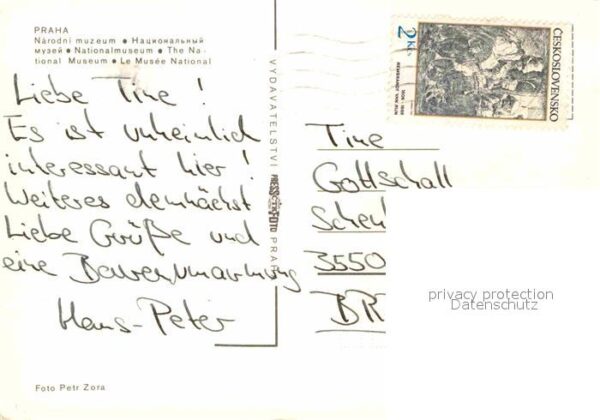 PRAHA
Národní muzeum ● Национальный
музей ● Nationalmuseum ● The Na-
tional Museum ● Le Musée National
Liebe Tine !
Es ist unheimlich
interessant hier !
Weiteres demnächst
Liebe Grüße und
eine Bärenumarmung
Hans-Peter
Foto Petr Zora
VYDAVATELSTVÍ PRESSFOTO PRAHA
2 Kčs
ČESKOSLOVENSKO
REMBRANDT VAN RIJN
Tine
Gottschall
3550
BR
privacy protection
Datenschutz